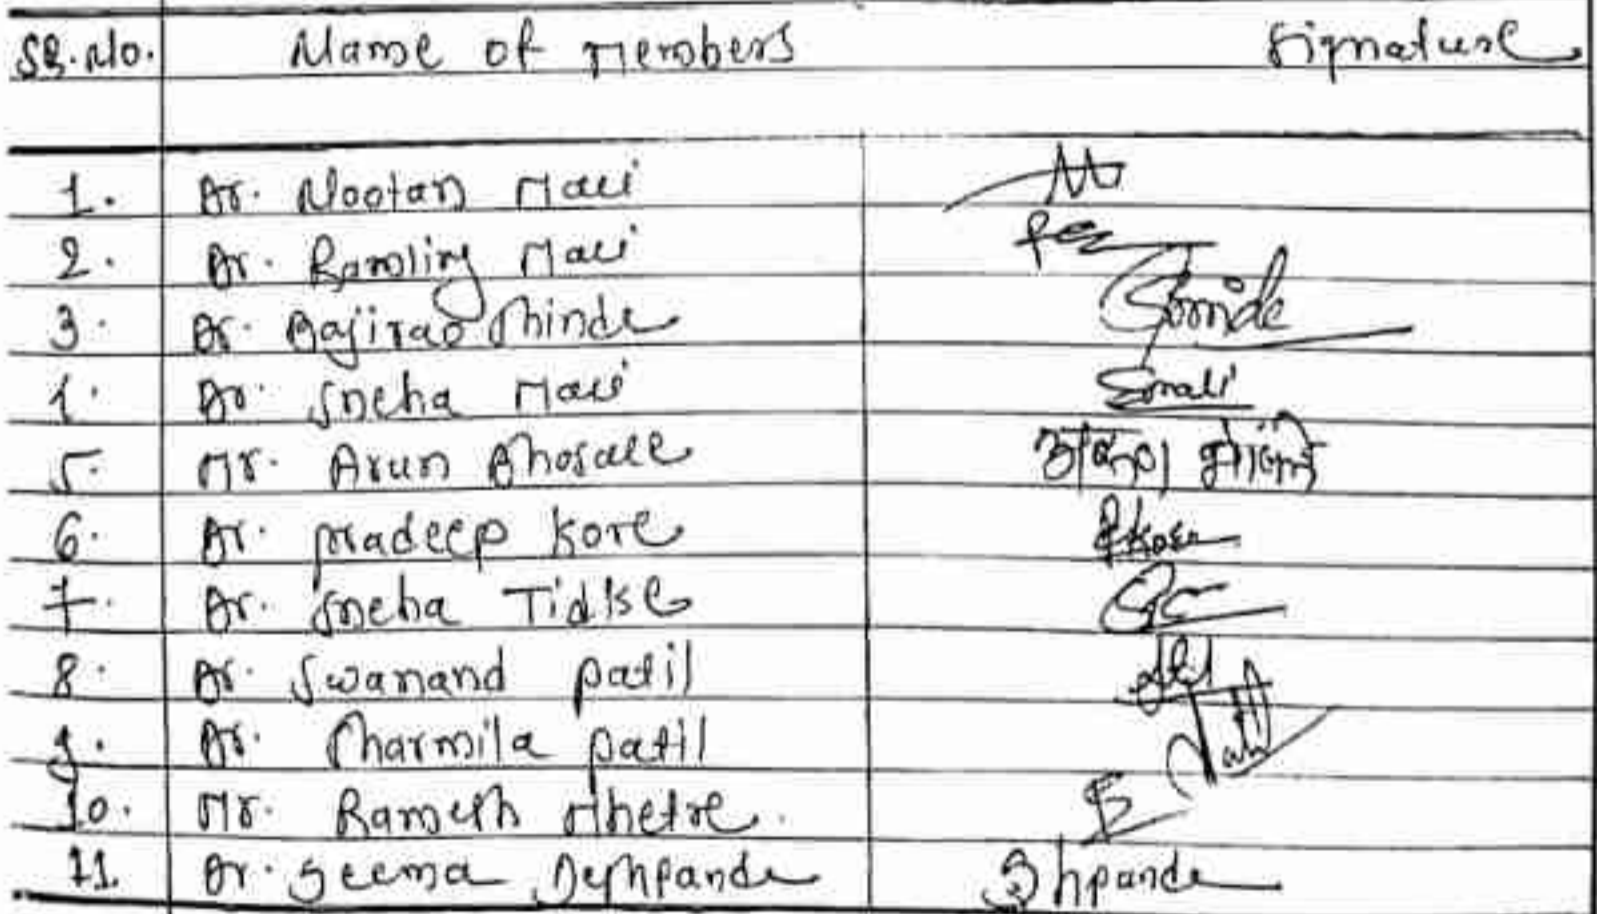 Sr. No. Name of Members Signature
1. Dr. Nootan Mali
2. Dr. Ramling Mali
3. Dr. Bajirao Shinde Shinde
4. Dr. Sneha Mali Smali
5. Mr. Arun Bhosale अरुण भोसले
6. Dr. pradeep Kore PKore
7. Dr. Sneha Tidke
8. Dr. Swanand patil
9. Dr. Sharmila patil Patil
10. Mr. Ramesh Mhetre.
11. Dr. Seema Deshpande Shpande